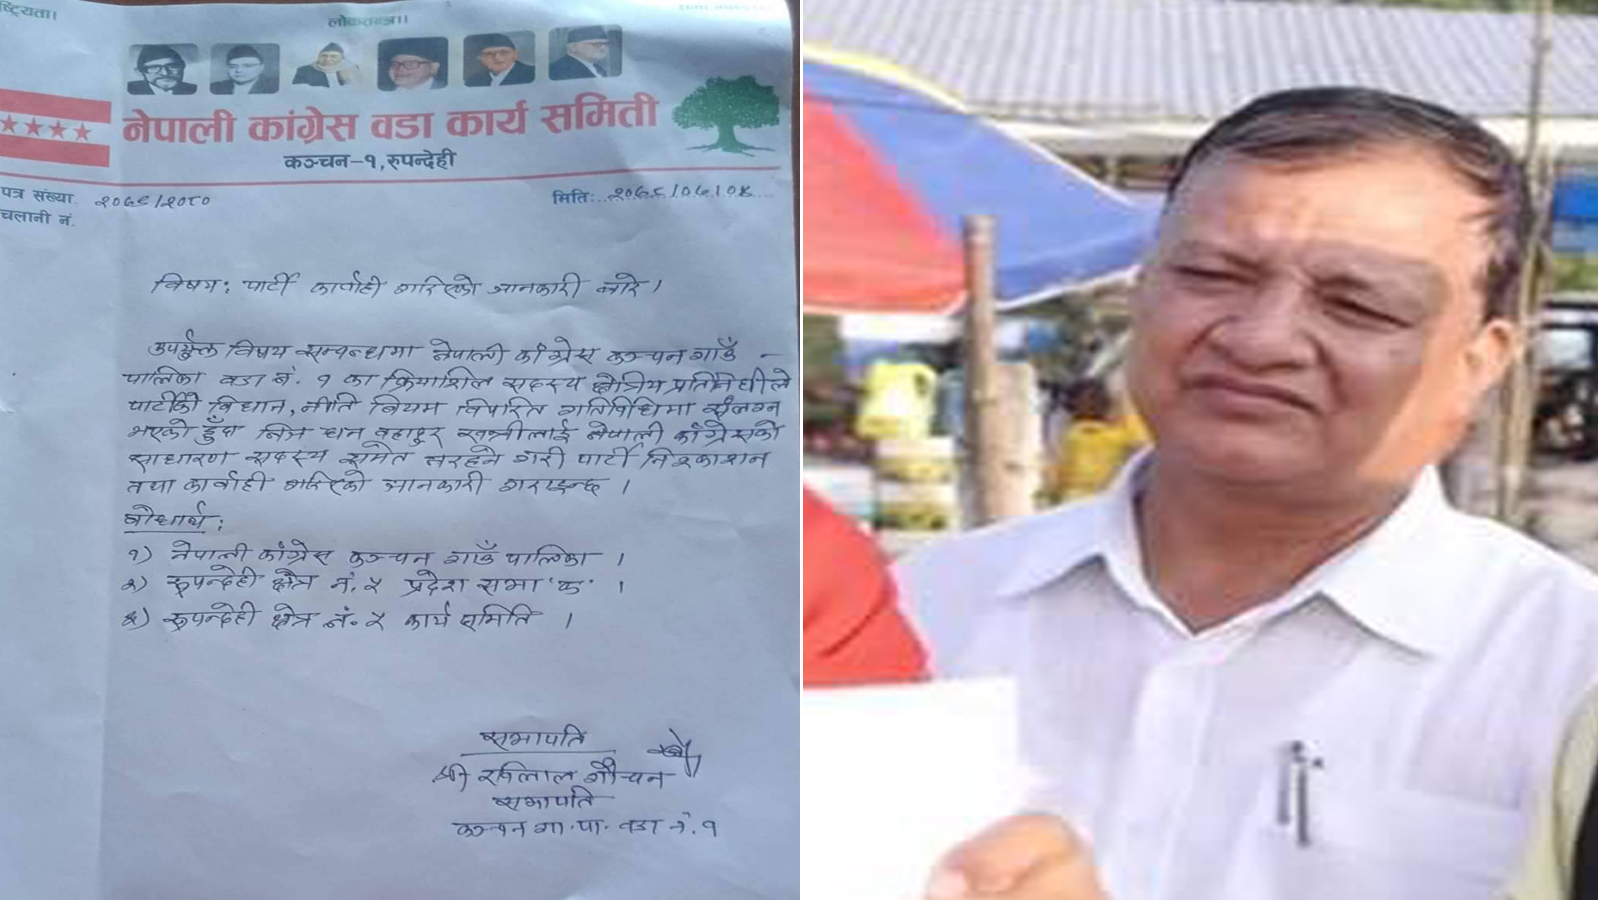 ष्ट्रियता।
लोकतन्त्र।।
नेपाली कांग्रेस वडा कार्य समिति
कञ्चन-१, रुपन्देही
पत्र संख्या. २०७९/२०८०
मिति:..२०७९/०७/०४....
चलानी नं.
विषय: पार्टी कार्वाही गरिएको जानकारी बारे।
उपर्युक्त विषय सम्बन्धमा नेपाली कांग्रेस कञ्चन गाउँ -
पालिका वडा नं. १ का क्रियाशिल सदस्य क्षेत्रिय प्रतिनिधीले
पार्टीको विधान, नीति नियम विपरित गतिविधिमा संलग्न
भएको हुँदा निज धन बहादुर खत्रीलाई नेपाली कांग्रेसको
साधारण सदस्य समेत नरहने गरी पार्टी निश्काशन
तथा कार्वाही गरिएको जानकारी गराइन्छ।
बोधार्थ:
१) नेपाली कांग्रेस कञ्चन गाउँ पालिका ।
२) रुपन्देही क्षेत्र नं. ५ प्रदेश सभा 'क' ।
३) रुपन्देही क्षेत्र नं. ५ कार्य समिति ।
सभापति
श्री गौचन
सभापति
कञ्चन गा.पा. वडा नं. १